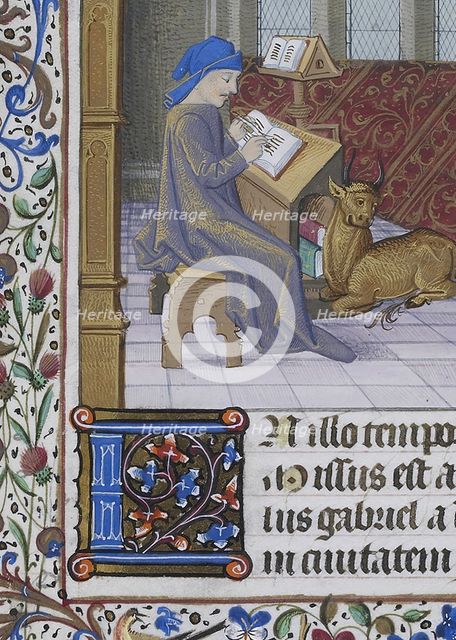 Heritage Heritage Heritage
Heritage Heritage Heritage
C
Heritage Heritage Heritage
IN illo tempo
Missus est a
lus gabriel a
in ciuitatem